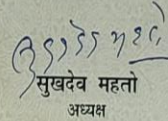 सुखदेव महतो
अध्यक्ष